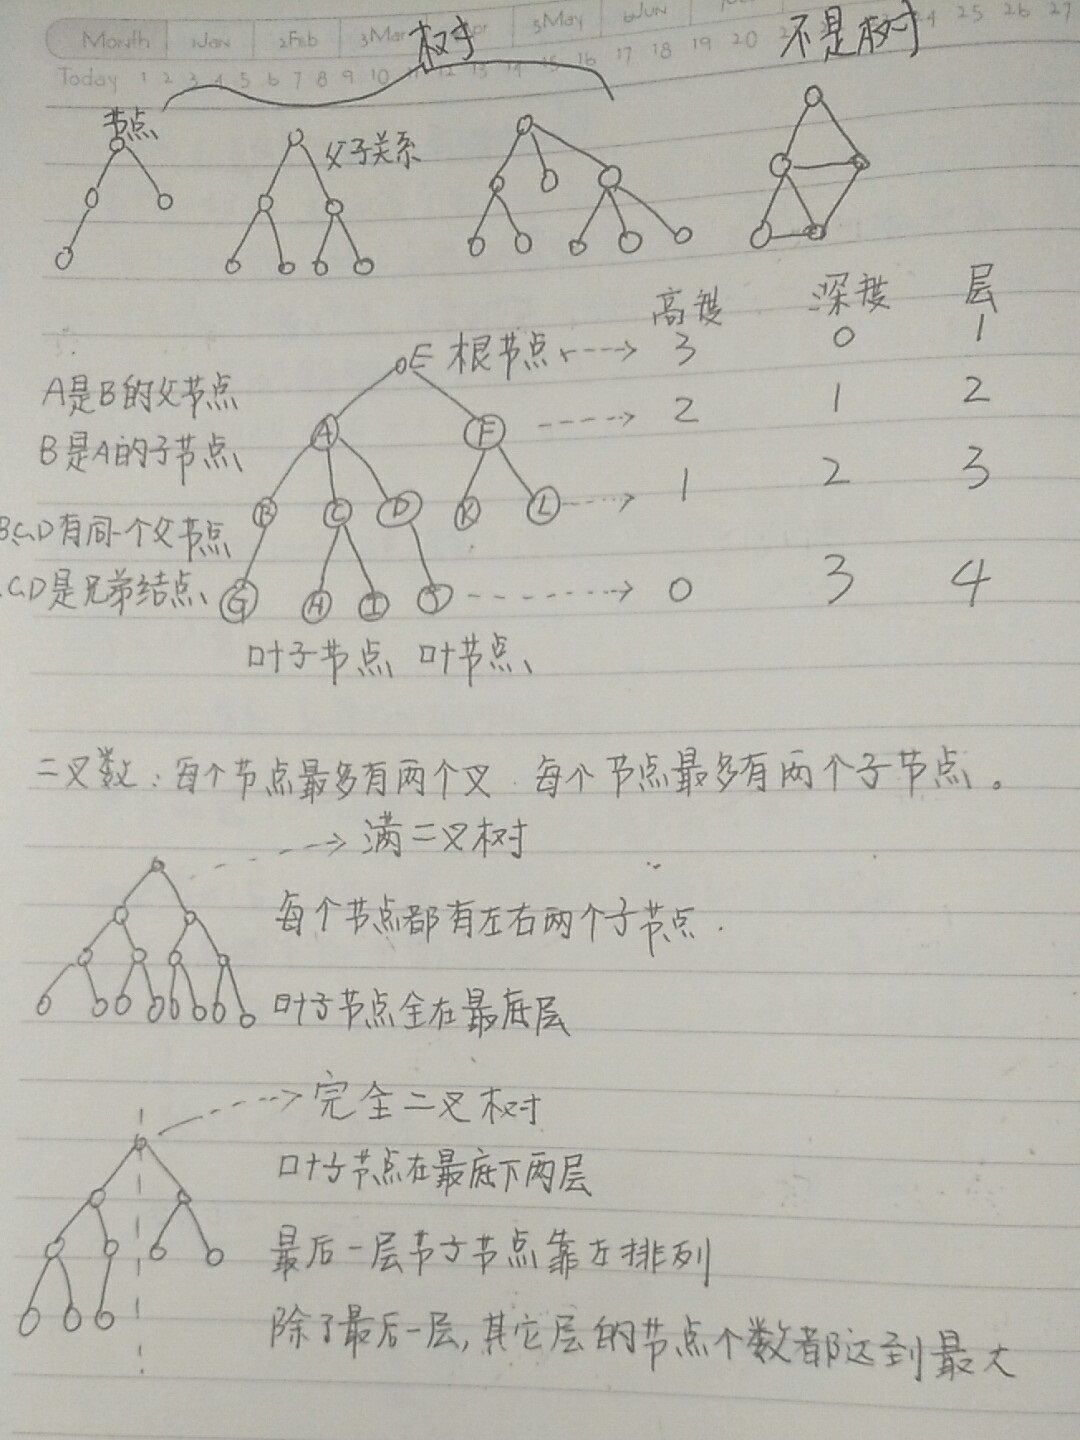 Month 1Jan 2Feb 3Mar 5May 6Jun
Today 1 2 3 4 5 6 7 8 9 10 12 13 14 15 16 17 18 19 20 24 25 26 27
树 不是树
节点
父子关系
高度 深度 层
E 根节点 3 0 1
A是B的父节点
A F 2 1 2
B是A的子节点
B C D K L 1 2 3
B.C.D有同一个父节点
.C.D是兄弟结点
G H I J 0 3 4
叶子节点 叶节点
二叉数:每个节点最多有两个叉 每个节点最多有两个子节点。
满二叉树
每个节点都有左右两个子节点.
叶子节点全在最底层
完全二叉树
叶子节点在最底下两层
最后一层节子节点靠左排列
除了最后一层,其它层的节点个数都达到最大